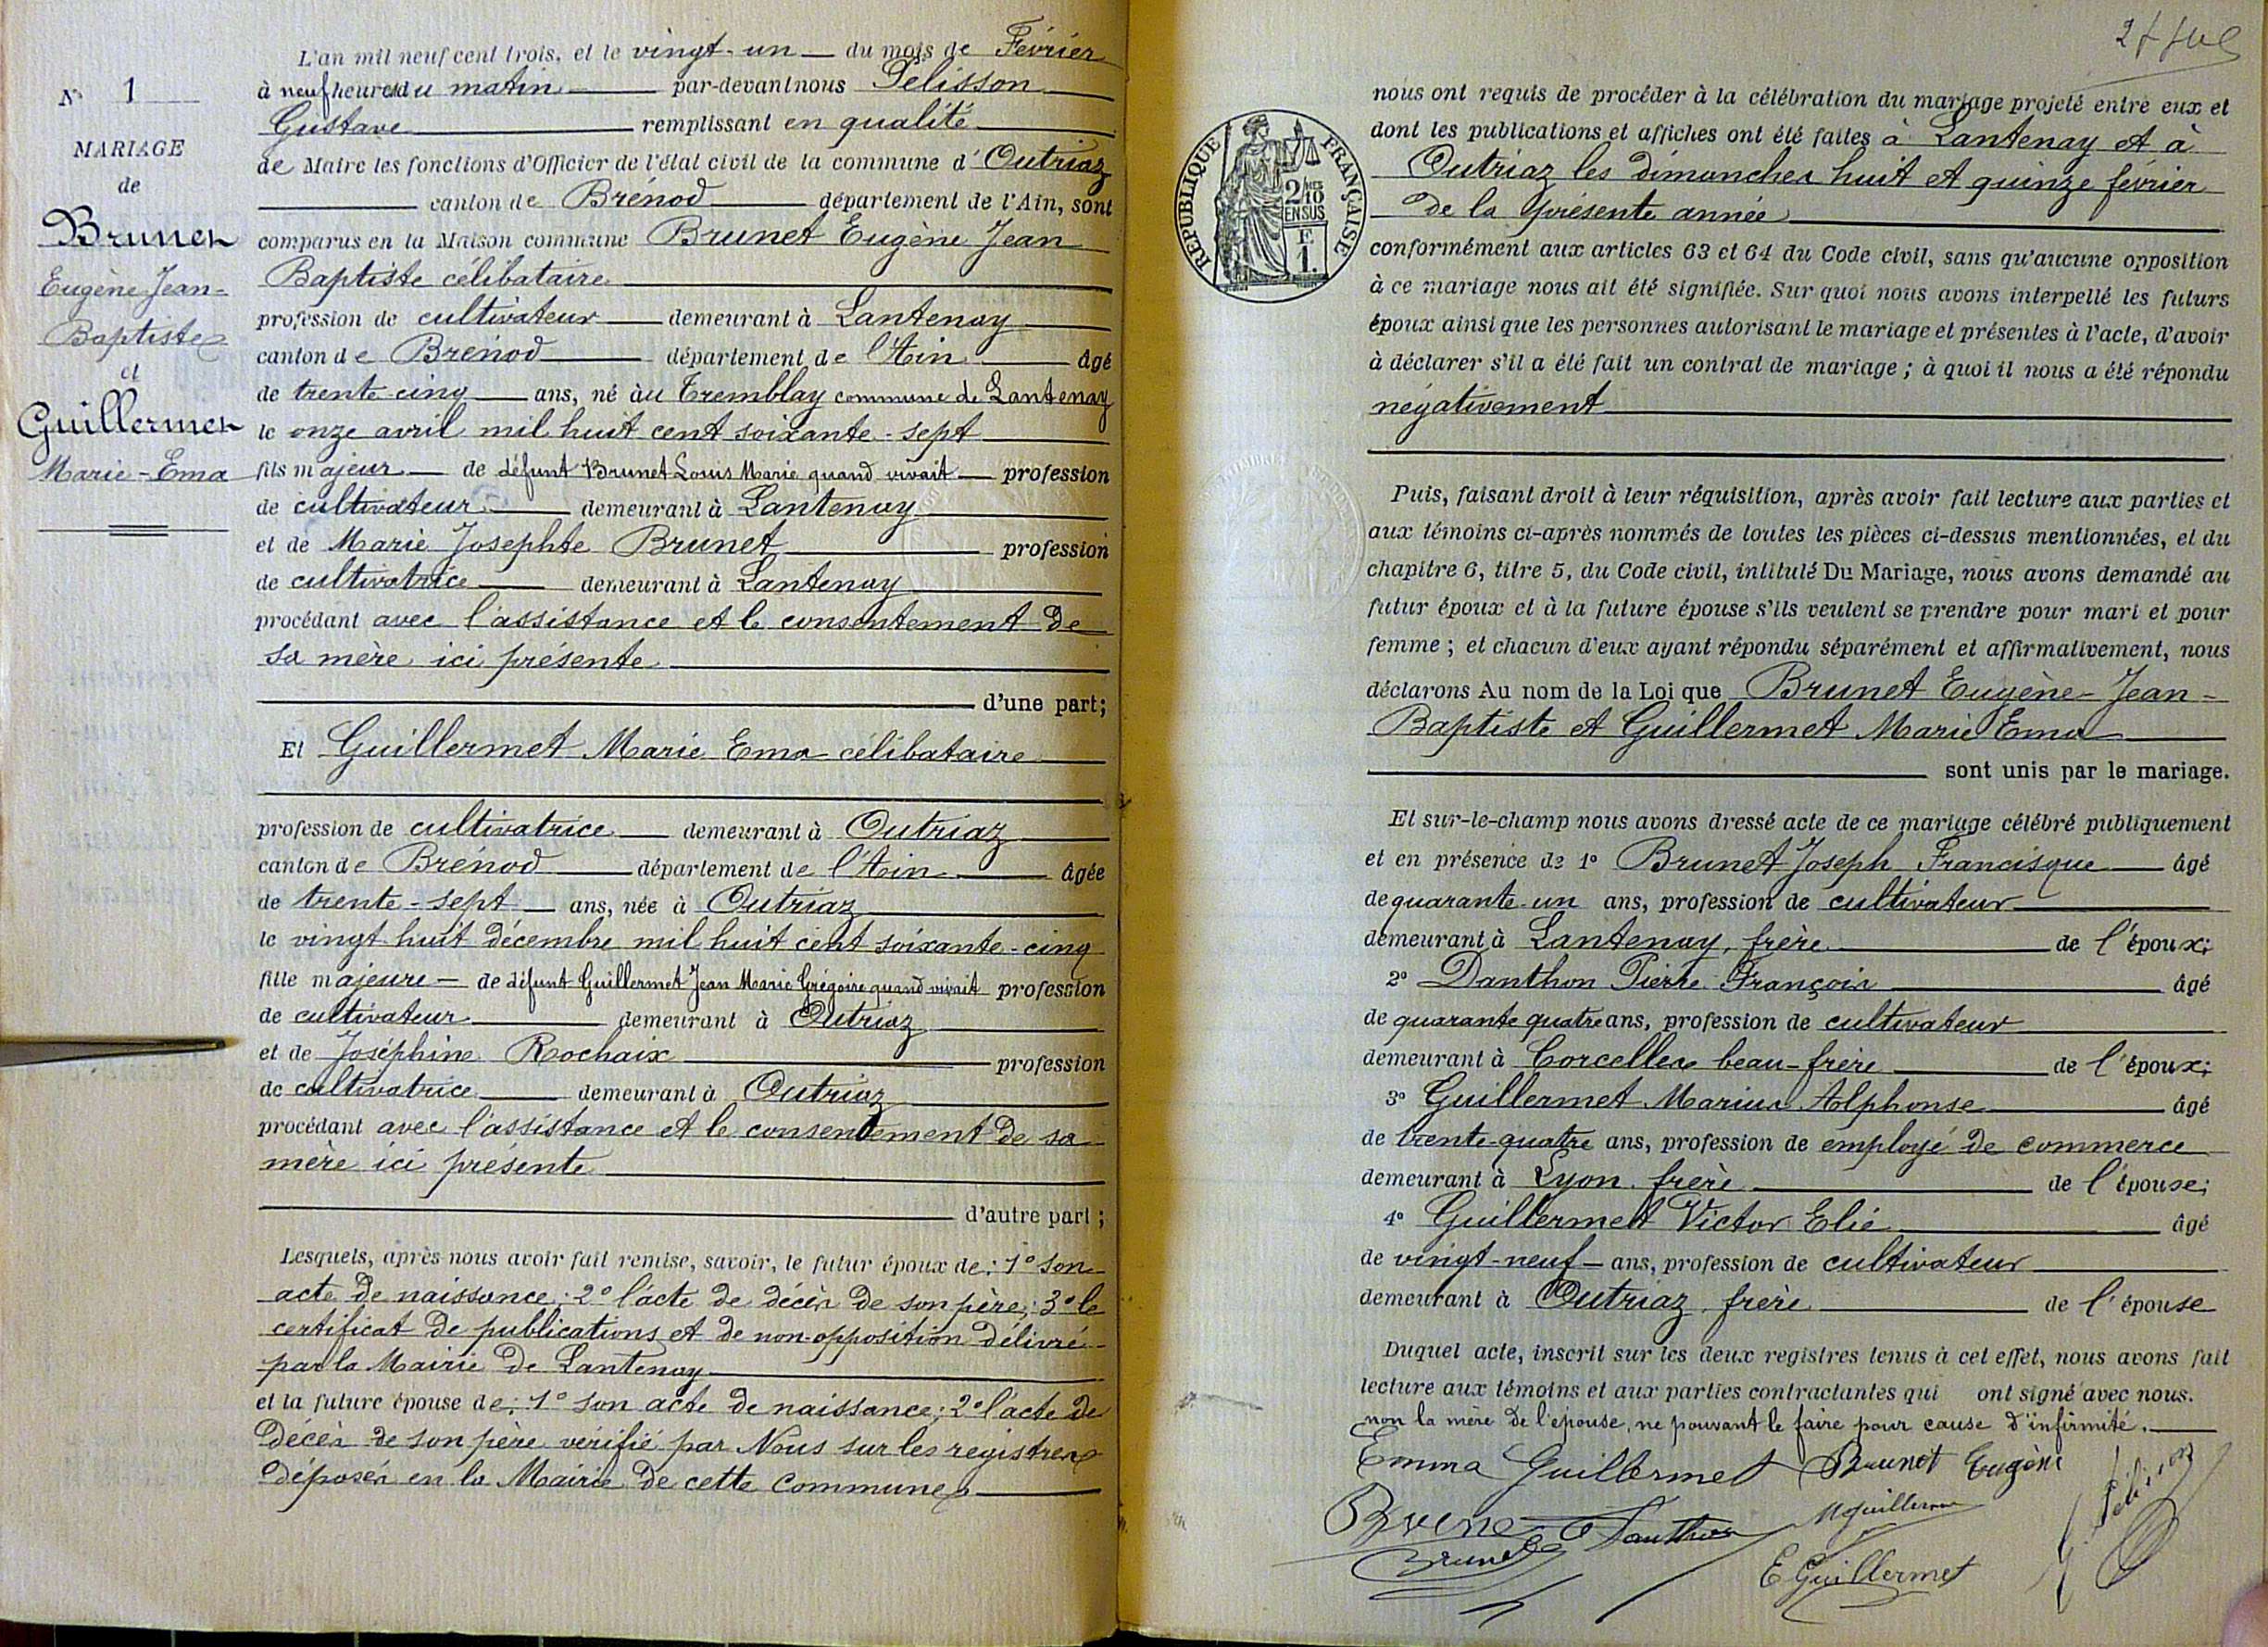 N° 1
MARIAGE
de
Brunet
Eugène Jean-
Baptiste
et
Guillermet
Marie-Ema
L'an mil neuf cent trois, et le vingt-un du mois de Février
à neuf heures du matin par-devant nous Pelisson
Gustave remplissant en qualité
de Maire les fonctions d'Officier de l'état civil de la commune d'Outriaz
canton de Brénod département de l'Ain, sont
comparus en la Maison commune Brunet Eugène Jean
Baptiste célibataire
profession de cultivateur demeurant à Lantenay
canton de Brénod département de l'Ain âgé
de trente-cinq ans, né àu Tremblay commune de Lantenay
le onze avril mil huit cent soixante-sept
fils majeur de défunt Brunet Louis Marie quand vivait profession
de cultivateur demeurant à Lantenay
et de Marie Josephte Brunet profession
de cultivatrice demeurant à Lantenay
procédant avec l'assistance et le consentement de
sa mère ici présente
d'une part;
Et Guillermet Marie Ema célibataire
profession de cultivatrice demeurant à Outriaz
canton de Brénod département de l'Ain âgée
de trente-sept ans, née à Outriaz
le vingt huit décembre mil huit cent soixante-cinq
fille majeure de défunt Guillermet Jean Marie Grégoire quand vivait profession
de cultivateur demeurant à Outriaz
et de Joséphine Rochaix profession
de cultivatrice demeurant à Outriaz
procédant avec l'assistance et le consentement de sa
mère ici présente
d'autre part;
Lesquels, après nous avoir fait remise, savoir, le futur époux de: 1° son
acte de naissance; 2° l'acte de décès de son père; 3° le
certificat de publications et de non-opposition délivré
par la Mairie de Lantenay
et la future épouse de: 1° son acte de naissance; 2° l'acte de
décès de son père vérifié par Nous sur les registres
déposés en la Mairie de cette commune
nous ont requis de procéder à la célébration du mariage projeté entre eux et
dont les publications et affiches ont été faites à Lantenay et à
Outriaz les dimanches huit et quinze février
de la présente année
RÉPUBLIQUE FRANÇAISE
2/10
EN SUS
E
1.
conformément aux articles 63 et 64 du Code civil, sans qu'aucune opposition
à ce mariage nous ait été signifiée. Sur quoi nous avons interpellé les futurs
époux ainsi que les personnes autorisant le mariage et présentes à l'acte, d'avoir
à déclarer s'il a été fait un contrat de mariage; à quoi il nous a été répondu
négativement
Puis, faisant droit à leur réquisition, après avoir fait lecture aux parties et
aux témoins ci-après nommés de toutes les pièces ci-dessus mentionnées, et du
chapitre 6, titre 5, du Code civil, intitulé Du Mariage, nous avons demandé au
futur époux et à la future épouse s'ils veulent se prendre pour mari et pour
femme; et chacun d'eux ayant répondu séparément et affirmativement, nous
déclarons Au nom de la Loi que Brunet Eugène-Jean-
Baptiste et Guillermet Marie Ema
sont unis par le mariage.
Et sur-le-champ nous avons dressé acte de ce mariage célébré publiquement
et en présence de 1° Brunet Joseph Francisque âgé
de quarante-un ans, profession de cultivateur
demeurant à Lantenay, frère de l'époux;
2° Danthon Pierre François âgé
de quarante quatre ans, profession de cultivateur
demeurant à Corcelles beau-frère de l'époux;
3° Guillermet Marius Alphonse âgé
de trente-quatre ans, profession de employé de commerce
demeurant à Lyon, frère de l'épouse;
4° Guillermet Victor Elie âgé
de vingt-neuf ans, profession de cultivateur
demeurant à Outriaz, frère de l'épouse
Duquel acte, inscrit sur les deux registres tenus à cet effet, nous avons fait
lecture aux témoins et aux parties contractantes qui ont signé avec nous.
non la mère de l'épouse, ne pouvant le faire pour cause d'infirmité.
Emma Guillermet Brunet Eugène
Brunet Danthon
E Guillermet